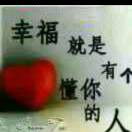 幸福
就是
有个
懂你
的
人